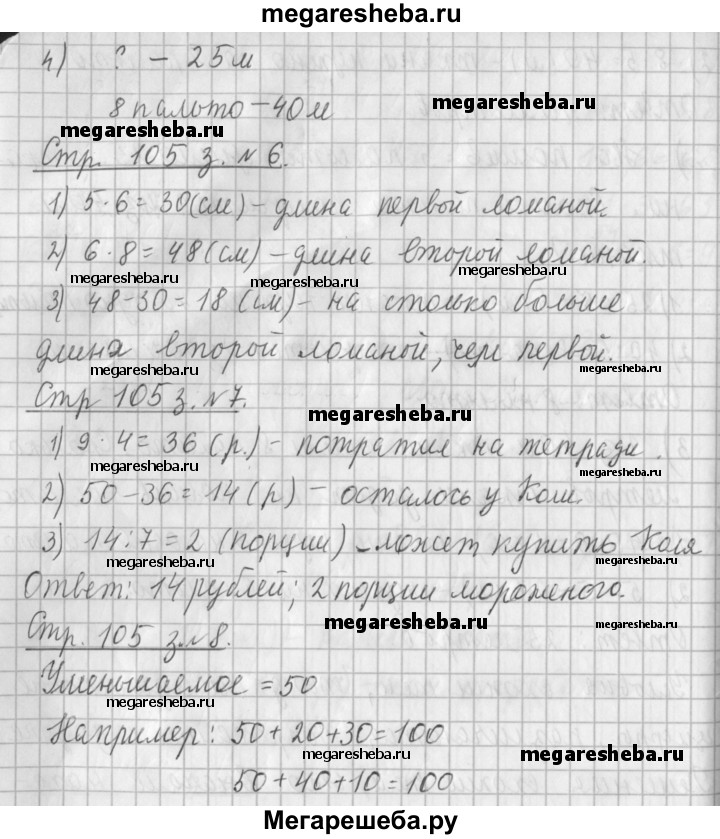 megaresheba.ru
4) ? - 25м
8 пальто - 40м
megaresheba.ru
megaresheba.ru
Стр. 105 з. №6.
1) 5·6=30(см) - длина первой ломаной.
2) 6·8=48(см) - длина второй ломаной.
megaresheba.ru megaresheba.ru megaresheba.ru
3) 48-30=18 (см) - на столько больше
длина второй ломаной, чем первой.
megaresheba.ru megaresheba.ru megaresheba.ru
Стр 105 з. №7.
megaresheba.ru
1) 9·4=36 (р.) - потратил на тетради.
megaresheba.ru megaresheba.ru
2) 50-36=14 (р) - осталось у Коли.
3) 14:7=2 (порции) - может купить Коля
megaresheba.ru megaresheba.ru megaresheba.ru
Ответ: 14 рублей; 2 порции мороженого.
megaresheba.ru megaresheba.ru
Стр. 105 з.№8.
Уменьшаемое = 50
Например: 50+20+30=100
megaresheba.ru megaresheba.ru
50+40+10=100
Мегарешеба.ру